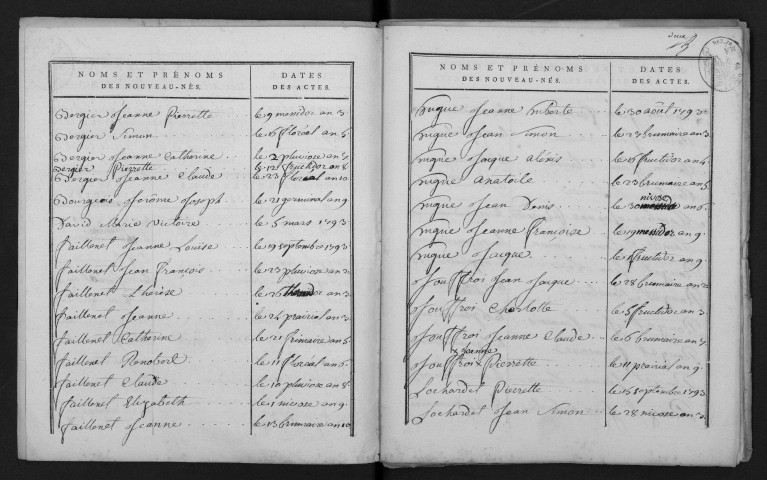 NOMS ET PRÉNOMS DES NOUVEAU-NÉS. DATES DES ACTES.
Bergier Jeanne Pierrette le 9 messidor an 3.
Bergier Simon le 6 floréal an 5
Bergier Jeanne Catherine le 2 pluviose an 7
Bergier Pierrette le 12 fructidor an 8
Bergier Jeanne Claude le 23 floréal an 10
Bourgeois Jérôme Joseph le 21 germinal an 9.
David Marie Victoire le 5 mars 1793
Faillenet Jeanne Louise le 19 septembre 1793
Faillenet Jean François le 23 pluviose an 2
Faillenet Thérèse le 26 an 3.
Faillenet Jeanne le 24 prairial an 3.
Faillenet Catherine le 21 frimaire an 5.
Faillenet Renobert le 11 floréal an 6.
Faillenet Claude le 10 pluviose an 8
Faillenet Elizabeth le 1 nivose an 9.
Faillenet Jeanne le 13 brumaire an 10
deux
NOMS ET PRÉNOMS DES NOUVEAU-NÉS. DATES DES ACTES.
hugue Jeanne huberte le 30 août 1793
hugue Jean Simon le 23 brumaire an 3.
hugue Jacque Alexis le 18 fructidor an 4.
hugue Anatoile le 23 brumaire an 5
hugue Jean Denis le 30 nivose an 6.
hugue Jeanne Françoise le 19 messidor an 9.
hugue Jacque le 1 fructidor an 9.
Jouffroi Jean Jacque le 28 brumaire an 2
Jouffroi Charlotte le 5 fructidor an 3.
Jouffroi Jeanne Claude le 6 brumaire an 7
Jouffroi Jeanne Pierrette le 11 prairial an 9.
Lochardet Pierrette le 16 septembre 1793
Lochardet Jean Simon le 28 nivose an 3.